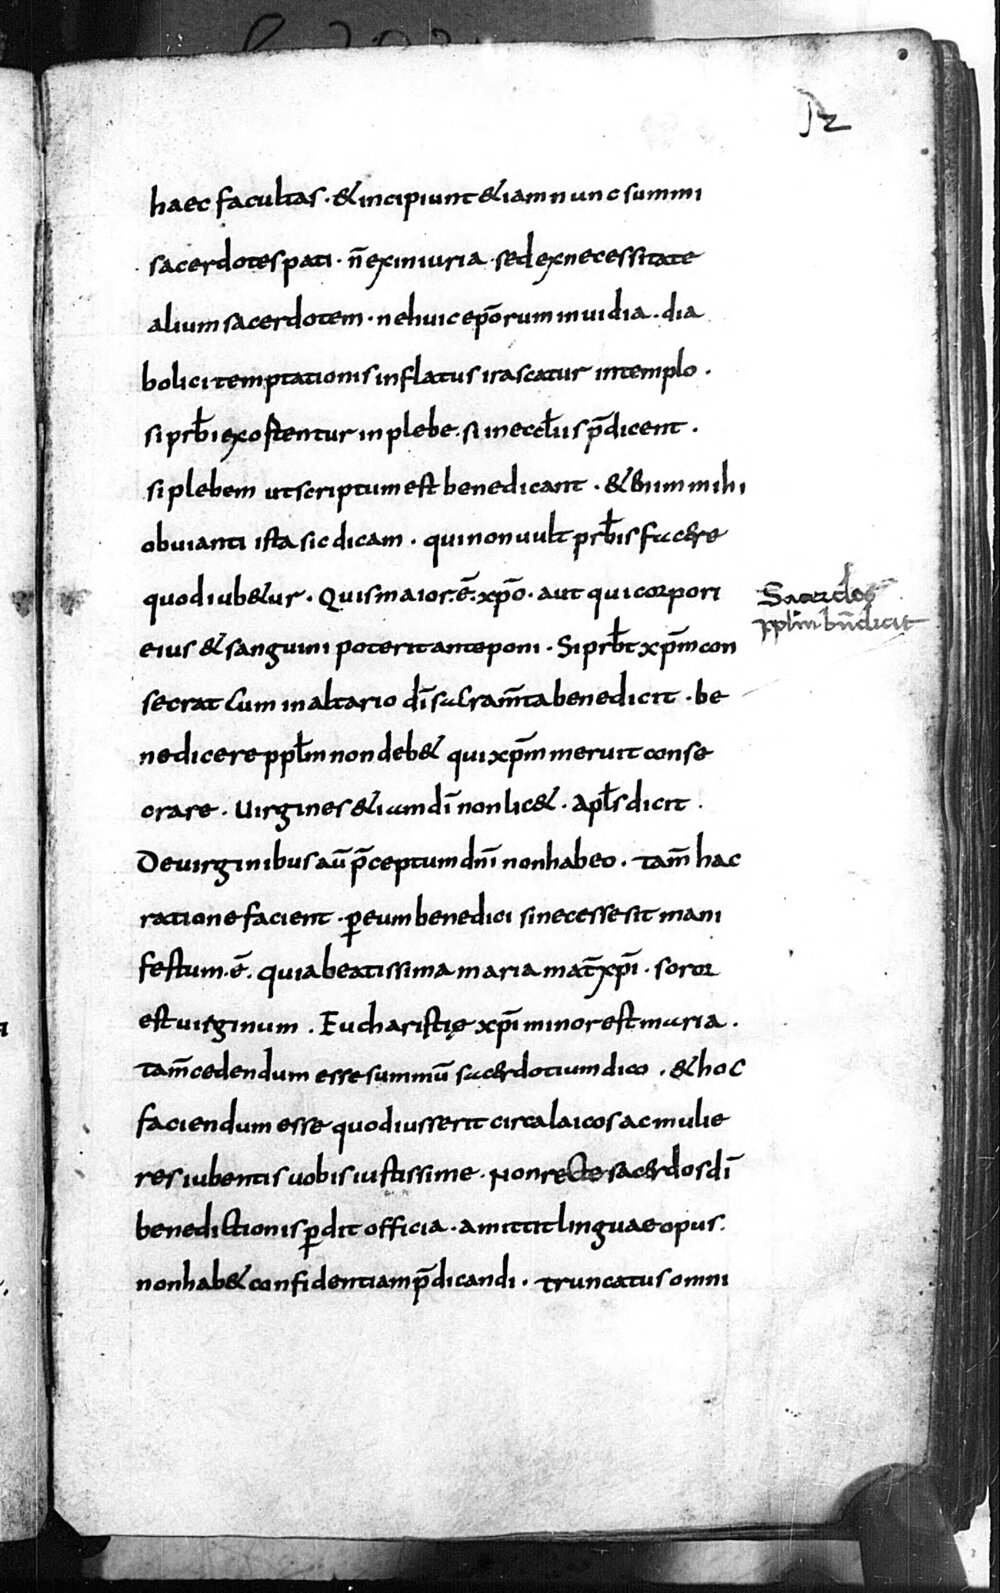 12
haec facultas · & incipiunt & iam nunc summi
sacerdotes pati · n̄ ex iniuria · sed ex necessitate
alium sacerdotem · ne huic ep̄orum inuidia · dia
bolici temptationis inflatus irascatur in templo ·
si prb̄i exostentur in plebe · si in eccl̄iis p̄dicent ·
si plebem ut scriptum est benedicant · & enim mihi
obuianti ista sic dicam · qui non uult prb̄is facere
quod iub&ur · Quis maior · ē · xp̄o · aut qui corpori
eius & sanguini poterit anteponi · Si prb̄t xp̄m con
secrat cum in altario dī sacram̄ta benedicit · be
nedicere ppl̄m non deb& qui xp̄m meruit conse
crare · Uirgines &iam dī non lic& · Apl̄s dicit ·
De uirginibus aū p̄ceptum dn̄i non habeo · tam̄ hac
ratione facient · ꝑ eum benedici si necesse sit mani
festum · ē · quia beatissima maria mat̄ xp̄i · soror
est uirginum · Eucharistię xp̄i minor est maria ·
Tam̄ cedendum esse summū sacerdotium dico · & hoc
faciendum esse quod iusserit circa laicos ac mulie
res iubentis uobis iustissime · Non recte sacerdos dī
benedictionis ꝑdit officia · amittit linguae opus ·
non hab& confidentiam p̄dicandi · truncatus omni
Sacerdos
ppl̄m bn̄dicit